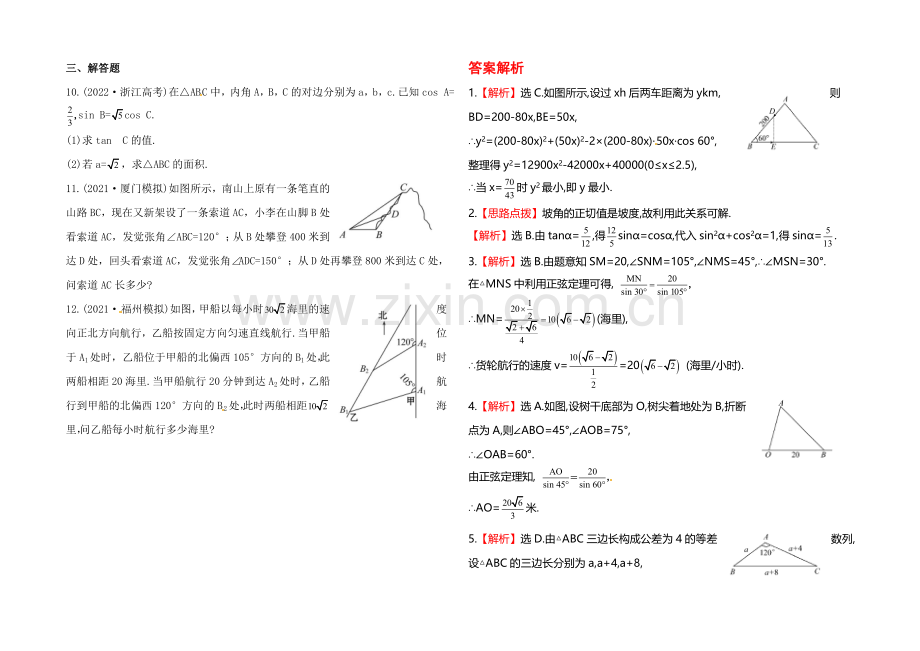 三、解答题
10.(2022·浙江高考)在△ABC中,内角A,B,C的对边分别为a,b,c.已知cos A=
2/3,sin B=√5cos C.
(1)求tan C的值.
(2)若a=√2,求△ABC的面积.
11.(2021·厦门模拟)如图所示,南山上原有一条笔直的
山路BC,现在又新架设了一条索道AC,小李在山脚B处
看索道AC,发觉张角∠ABC=120°;从B处攀登400米到
达D处,回头看索道AC,发觉张角∠ADC=150°;从D处再攀登800米到达C处,
问索道AC长多少?
A B C D
12.(2021·福州模拟)如图,甲船以每小时30√2海里的速度
向正北方向航行,乙船按固定方向匀速直线航行.当甲船位
于A₁处时,乙船位于甲船的北偏西105°方向的B₁处,此时
两船相距20海里.当甲船航行20分钟到达A₂处时,乙船航
行到甲船的北偏西120°方向的B₂处,此时两船相距10√2海
里,问乙船每小时航行多少海里?
北 120° A₂ B₂ 105° A₁ 甲 B₁ 乙
答案解析
1.【解析】选C.如图所示,设过xh后两车距离为ykm,则
BD=200-80x,BE=50x,
∴y²=(200-80x)²+(50x)²-2×(200-80x)·50x·cos 60°,
整理得y²=12900x²-42000x+40000(0≤x≤2.5),
∴当x=70/43时y²最小,即y最小.
A D 200 60° B E C
2.【思路点拨】坡角的正切值是坡度,故利用此关系可解.
【解析】选B.由tanα=5/12,得12/5sinα=cosα,代入sin²α+cos²α=1,得sinα=5/13.
3.【解析】选B.由题意知SM=20,∠SNM=105°,∠NMS=45°,∴∠MSN=30°.
在△MNS中利用正弦定理可得, MN/sin 30°=20/sin 105°,
∴MN=(20×1/2)/((√2+√6)/4)=10(√6-√2)(海里),
∴货轮航行的速度v=10(√6-√2)/(1/2)=20(√6-√2) (海里/小时).
4.【解析】选A.如图,设树干底部为O,树尖着地处为B,折断
点为A,则∠ABO=45°,∠AOB=75°,
∴∠OAB=60°.
由正弦定理知, AO/sin 45°=20/sin 60°,
∴AO=20√6/3米.
A O 20 B
5.【解析】选D.由△ABC三边长构成公差为4的等差数列,
设△ABC的三边长分别为a,a+4,a+8,
A a 120° a+4 B a+8 C
www.zixin.com.cn